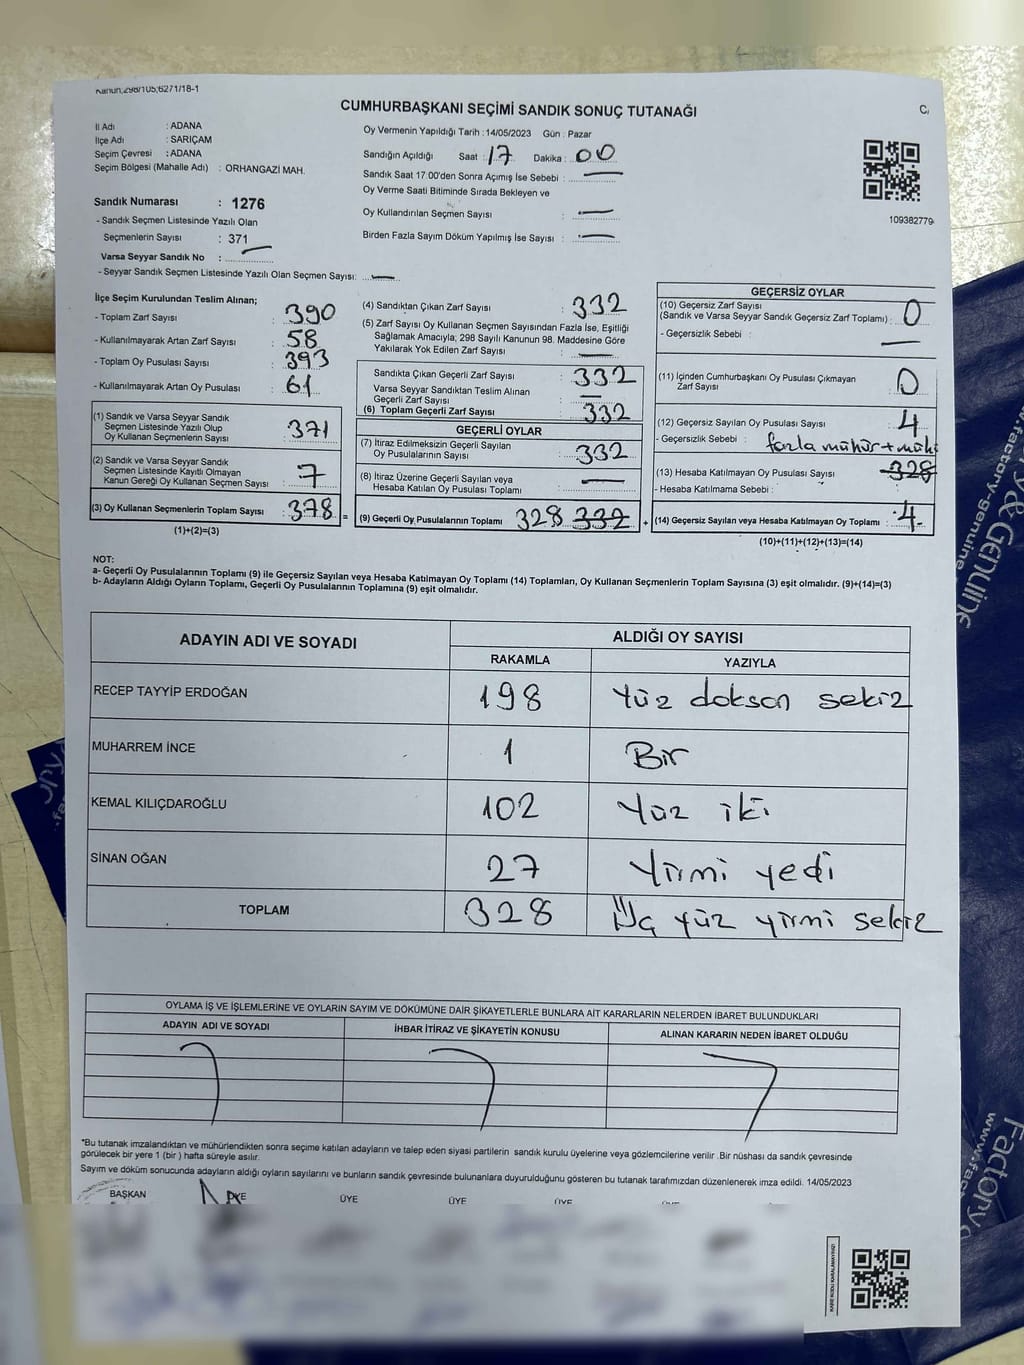 Kanun;298/105;6271/18-1
CUMHURBAŞKANI SEÇİMİ SANDIK SONUÇ TUTANAĞI
İl Adı : ADANA
İlçe Adı : SARIÇAM
Seçim Çevresi : ADANA
Seçim Bölgesi (Mahalle Adı) : ORHANGAZİ MAH.
Sandık Numarası : 1276
- Sandık Seçmen Listesinde Yazılı Olan
Seçmenlerin Sayısı : 371
Varsa Seyyar Sandık No :
- Seyyar Sandık Seçmen Listesinde Yazılı Olan Seçmen Sayısı:
Oy Vermenin Yapıldığı Tarih :14/05/2023 Gün : Pazar
Sandığın Açıldığı Saat : 17 Dakika : 00
Sandık Saat 17:00'den Sonra Açımış İse Sebebi :
Oy Verme Saati Bitiminde Sırada Bekleyen ve
Oy Kullandırılan Seçmen Sayısı :
Birden Fazla Sayım Döküm Yapılmış İse Sayısı :
109382779
İlçe Seçim Kurulundan Teslim Alınan;
- Toplam Zarf Sayısı : 390
- Kullanılmayarak Artan Zarf Sayısı : 58
- Toplam Oy Pusulası Sayısı : 393
- Kullanılmayarak Artan Oy Pusulası : 61
(1) Sandık ve Varsa Seyyar Sandık
Seçmen Listesinde Yazılı Olup
Oy Kullanan Seçmenlerin Sayısı : 371
(2) Sandık ve Varsa Seyyar Sandık
Seçmen Listesinde Kayıtlı Olmayan
Kanun Gereği Oy Kullanan Seçmen Sayısı : 7
(3) Oy Kullanan Seçmenlerin Toplam Sayısı : 378 =
(1)+(2)=(3)
(4) Sandıktan Çıkan Zarf Sayısı : 332
(5) Zarf Sayısı Oy Kullanan Seçmen Sayısından Fazla İse, Eşitliği
Sağlamak Amacıyla; 298 Sayılı Kanunun 98. Maddesine Göre
Yakılarak Yok Edilen Zarf Sayısı :
Sandıkta Çıkan Geçerli Zarf Sayısı : 332
Varsa Seyyar Sandıktan Teslim Alınan
Geçerli Zarf Sayısı :
(6) Toplam Geçerli Zarf Sayısı : 332
GEÇERLİ OYLAR
(7) İtiraz Edilmeksizin Geçerli Sayılan
Oy Pusulalarının Sayısı : 332
(8) İtiraz Üzerine Geçerli Sayılan veya
Hesaba Katılan Oy Pusulası Toplamı :
(9) Geçerli Oy Pusulalarının Toplamı : 328 332 +
GEÇERSİZ OYLAR
(10) Geçersiz Zarf Sayısı
(Sandık ve Varsa Seyyar Sandık Geçersiz Zarf Toplamı) : 0
- Geçersizlik Sebebi :
(11) İçinden Cumhurbaşkanı Oy Pusulası Çıkmayan
Zarf Sayısı : 0
(12) Geçersiz Sayılan Oy Pusulası Sayısı : 4
- Geçersizlik Sebebi : fazla mühür+mühü
(13) Hesaba Katılmayan Oy Pusulası Sayısı : 328
- Hesaba Katılmama Sebebi :
(14) Geçersiz Sayılan veya Hesaba Katılmayan Oy Toplamı : 4
(10)+(11)+(12)+(13)=(14)
NOT:
a- Geçerli Oy Pusulalarının Toplamı (9) ile Geçersiz Sayılan veya Hesaba Katılmayan Oy Toplamı (14) Toplamları, Oy Kullanan Seçmenlerin Toplam Sayısına (3) eşit olmalıdır. (9)+(14)=(3)
b- Adayların Aldığı Oyların Toplamı, Geçerli Oy Pusulalarının Toplamına (9) eşit olmalıdır.
ADAYIN ADI VE SOYADI ALDIĞI OY SAYISI
RAKAMLA YAZIYLA
RECEP TAYYİP ERDOĞAN 198 Yüz dokson sekiz
MUHARREM İNCE 1 Bir
KEMAL KILIÇDAROĞLU 102 Yüz iki
SİNAN OĞAN 27 Yirmi yedi
TOPLAM 328 Üç yüz yirmi sekiz
OYLAMA İŞ VE İŞLEMLERİNE VE OYLARIN SAYIM VE DÖKÜMÜNE DAİR ŞİKAYETLERLE BUNLARA AİT KARARLARIN NELERDEN İBARET BULUNDUKLARI
ADAYIN ADI VE SOYADI İHBAR İTİRAZ VE ŞİKAYETİN KONUSU ALINAN KARARIN NEDEN İBARET OLDUĞU
"Bu tutanak imzalandıktan ve mühürlendikten sonra seçime katılan adayların ve talep eden siyasi partilerin sandık kurulu üyelerine veya gözlemcilerine verilir .Bir nüshası da sandık çevresinde
görülecek bir yere 1 (bir ) hafta süreyle asılır.
Sayım ve döküm sonucunda adayların aldığı oyların sayılarını ve bunların sandık çevresinde bulunanlara duyurulduğunu gösteren bu tutanak tarafımızdan düzenlenerek imza edildi. 14/05/2023
BAŞKAN ÜYE ÜYE ÜYE ÜYE